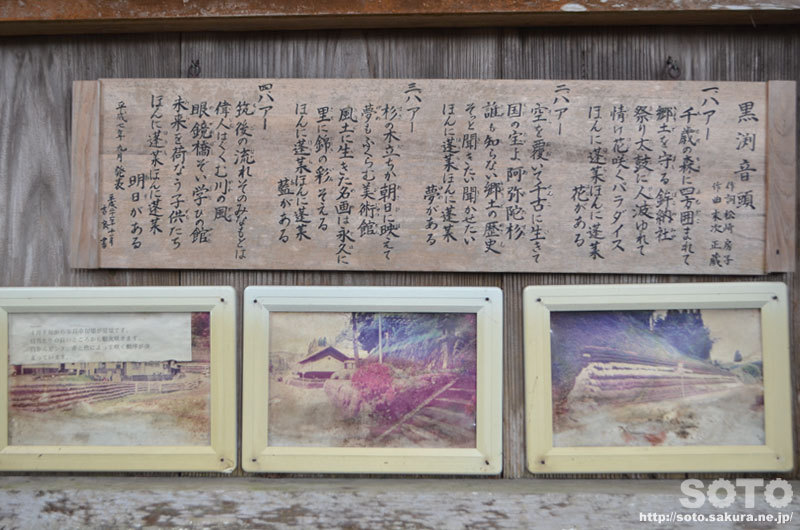 黒渕音頭
作詞 松崎 房子
作曲 末次 正蔵
一、ハアー
千歳の森に四方囲まれて
郷土を守る鉾納社
祭り太鼓に人波ゆれて
情け花咲くパラダイス
ほんに蓬莱ほんに蓬莱
花がある
二、ハアー
空を覆いて千古に生きて
国の宝よ阿弥陀杉
誰も知らない郷土の歴史
そっと聞きたい聞かせたい
ほんに蓬莱ほんに蓬莱
夢がある
三、ハアー
杉の木立ちが朝日に映えて
夢もふくらむ美術館
風土に生きた名画は永久に
里に錦の彩そえる
ほんに蓬莱ほんに蓬莱
藍がある
四、ハアー
筑後の流れそのみなもとは
偉人はぐくむ川の風
眼鏡橋そい学びの館
未来を荷なう子供たち
ほんに蓬莱ほんに蓬莱
明日がある
平成七年九月 発表
白からピンク、赤と色によって咲く順序が決
まっています。
SOTO
http://soto.sakura.ne.jp/